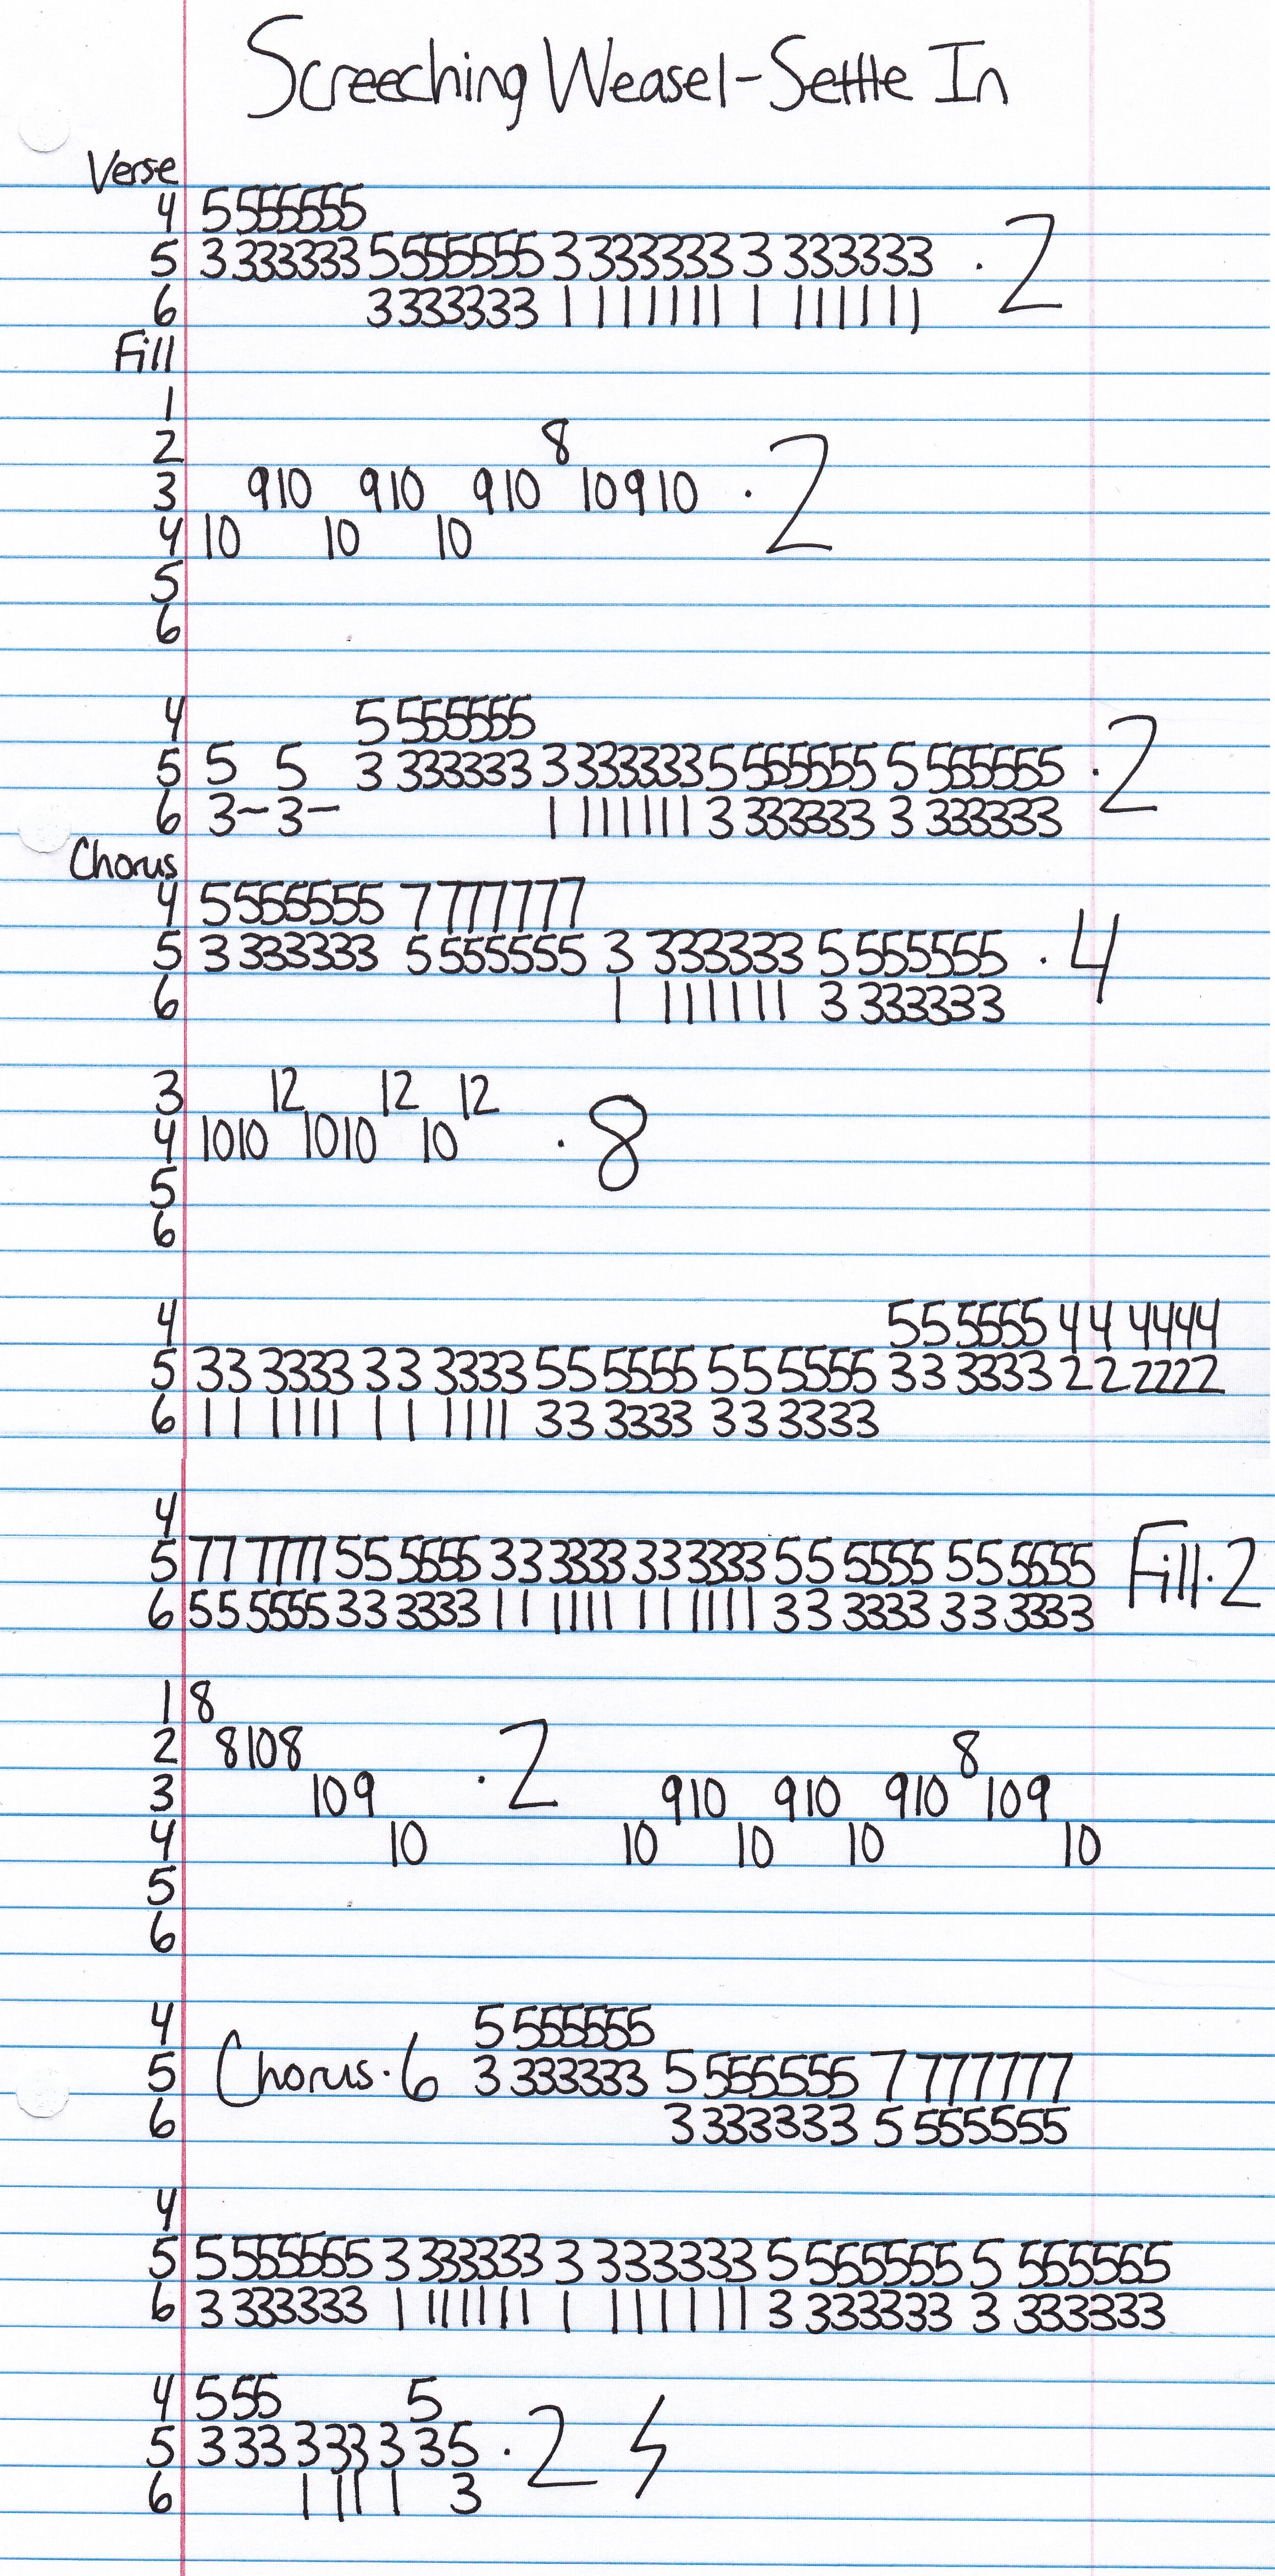 Screeching Weasel-Settle In
Verse
4 5 555555
5 3 333333 5555555 3 333333 3 333333 · 2
6 3333333 1 111111 1 111111
Fill
1
2 8
3 9 10 9 10 9 10 10 9 10 · 2
4 10 10 10
5
6
4 5 555555
5 5 5 3 333333 3 333333 5 555555 5 555555 · 2
6 3- 3- 1 111111 3 333333 3 333333
Chorus
4 5 555555 7 777777
5 3 333333 5 555555 3 333333 5 555555 · 4
6 1 111111 3 333333
3 12 12 12
4 10 10 10 10 10 · 8
5
6
4 55 5555 44 4444
5 33 3333 33 3333 55 5555 55 5555 33 3333 22 2222
6 11 1111 11 1111 33 3333 33 3333
4
5 77 7777 55 5555 33 3333 33 3333 55 5555 55 5555 Fill · 2
6 55 5555 33 3333 11 1111 11 1111 33 3333 33 3333
1 8
2 8 10 8 8
3 10 9 · 2 9 10 9 10 9 10 10 9
4 10 10 10 10 10
5
6
4 5 555555
5 Chorus · 6 3 333333 5 555555 7 777777
6 3 333333 5 555555
4
5 5 555555 3 333333 3 333333 5 555555 5 555555
6 3 333333 1 111111 1 111111 3 333333 3 333333
4 5 55 5
5 3 33 3 33 3 3 5 · 2
6 1 11 1 3